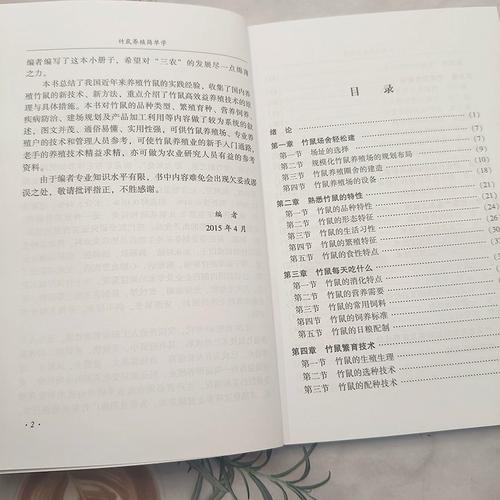 竹鼠养殖简单学
编者编写了这本小册子，希望对“三农”的发展尽一点绵薄
之力。
本书总结了我国近年来养殖竹鼠的实践经验，收集了国内养
殖竹鼠的新技术、新方法，重点介绍了竹鼠高效益养殖技术的原
理与具体措施。本书对竹鼠的品种类型、繁殖育种、营养饲养、
疾病防治、建场规划及产品加工利用等内容做了较为系统的叙
述，图文并茂、通俗易懂、实用性强，可供竹鼠养殖场、专业养
殖户的技术和管理人员参考，可使竹鼠养殖业的新手入门通路，
老手的养殖技术精益求精，亦可做为农业研究人员有益的参考
资料。
由于编者专业知识水平有限，书中内容难免会出现欠妥或谬
误之处，敬请批评指正，不胜感谢。
编 者
2015 年 4 月
· 2 ·
目 录
绪 论 (1)
第一章 竹鼠场舍轻松建 (7)
第一节 场址的选择 (7)
第二节 规模化竹鼠养殖场的规划布局 (9)
第三节 竹鼠养殖圈舍的建造 (10)
第四节 竹鼠养殖场的设备
第二章 熟悉竹鼠的特性 (21)
第一节 竹鼠的品种特性 (21)
第二节 竹鼠的形态特征 (24)
第三节 竹鼠的生活习性 (26
第四节 竹鼠的繁殖特征 (30
第五节 竹鼠的食性特点
第三章 竹鼠每天吃什么
第一节 竹鼠的消化特点
第二节 竹鼠的营养需要
第三节 竹鼠的常用饲料
第四节 竹鼠的饲养标准
第五节 竹鼠的日粮配制
第四章 竹鼠繁育技术
第一节 竹鼠的生殖生理
第二节 竹鼠的选种技术
第三节 竹鼠的配种技术